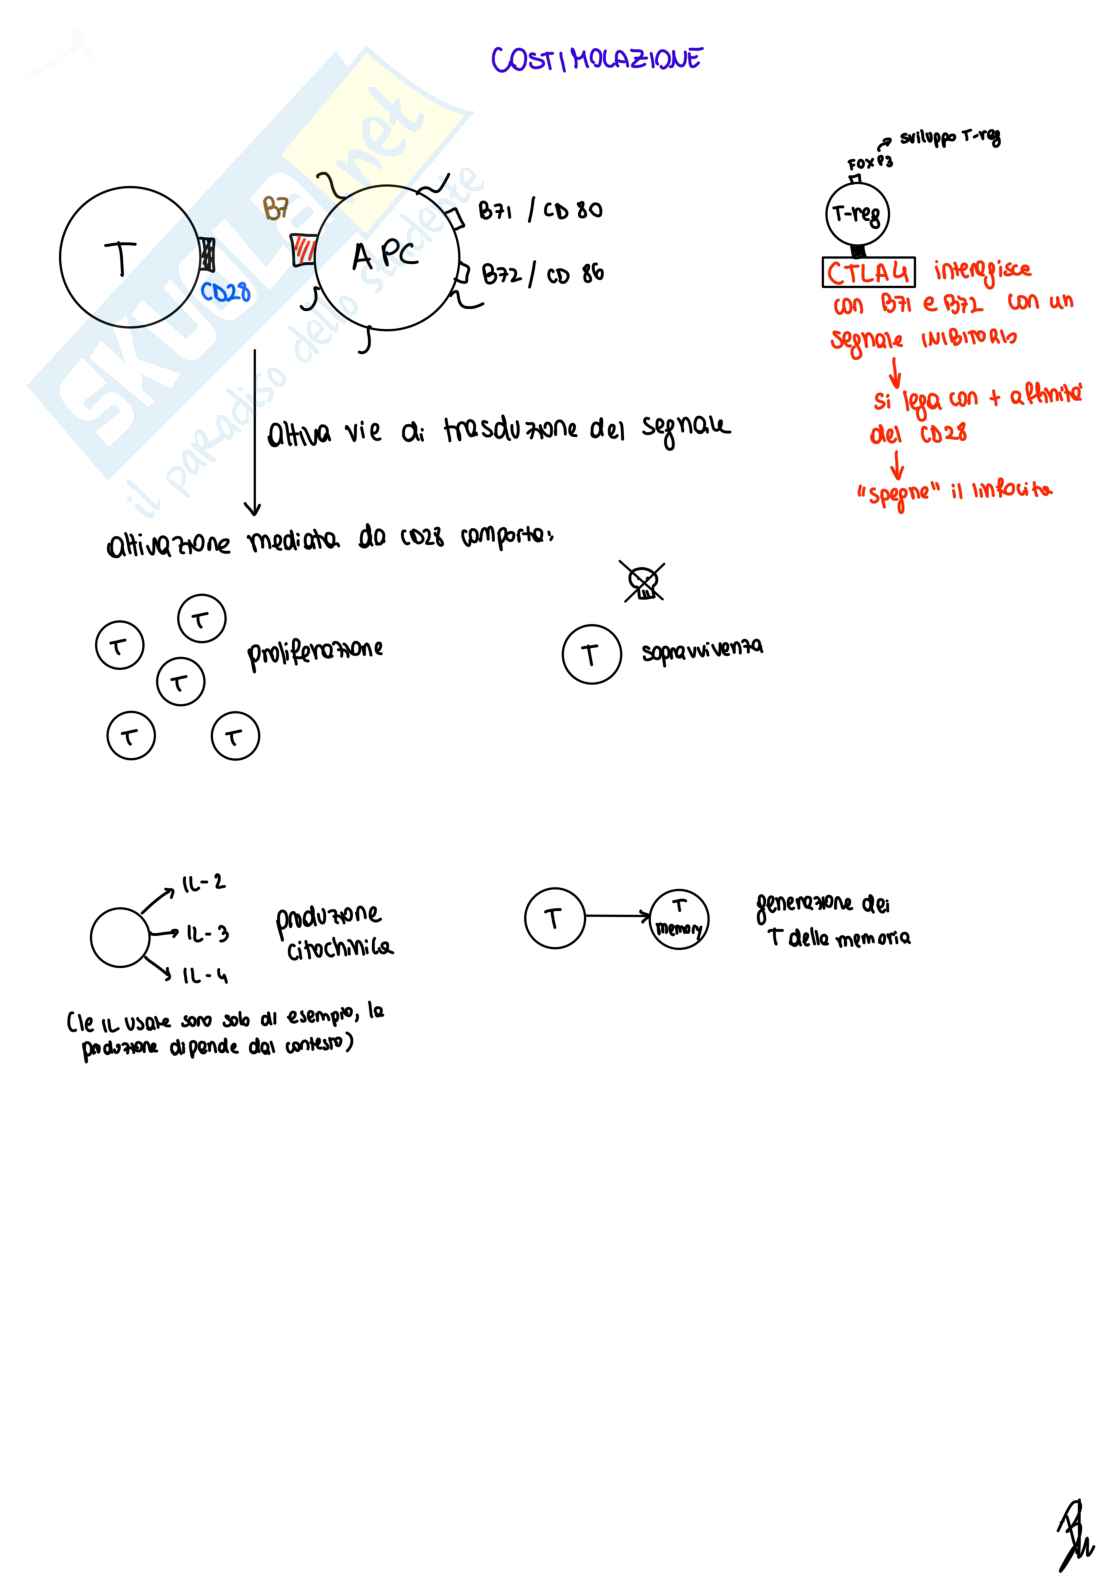 COSTIMOLAZIONE
SKUOLA.net
il paradiso dello studente
T
CD28
B7
APC
B71 / CD 80
B72 / CD 86
sviluppo T-reg
FOXP3
T-reg
CTLA4 interagisce
con B71 e B72 con un
segnale INIBITORIO
si lega con + affinità
del CD28
"spegne" il linfocita
attiva vie di trasduzione del segnale
attivazione mediata da CD28 comporta:
T
T
T
T
T
proliferazione
T
sopravvivenza
IL-2
IL-3
IL-4
produzione
citochinica
(le IL usate sono solo di esempio, la
produzione dipende dal contesto)
T
T
memory
generazione dei
T della memoria